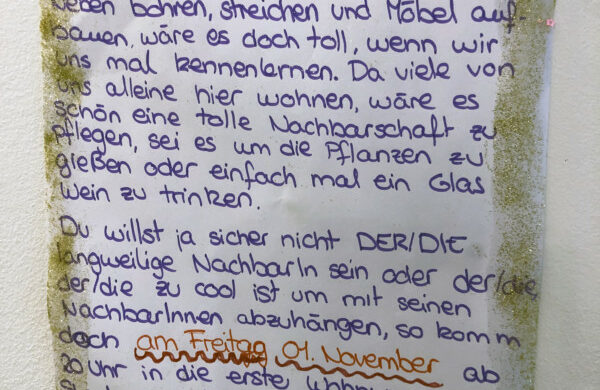 neben bohren, streichen und Möbel auf-
bauen, wäre es doch toll, wenn wir
uns mal kennenlernen. Da viele von
uns alleine hier wohnen, wäre es
schön eine tolle Nachbarschaft zu
pflegen, sei es um die Pflanzen zu
gießen oder einfach mal ein Glas
Wein zu trinken.
Du willst ja sicher nicht DER/DIE
langweilige NachbarIn sein oder der/die,
der/die zu cool ist um mit seinen
NachbarInnen abzuhängen, so komm
doch am Freitag 01. November ab
20 Uhr in die erste